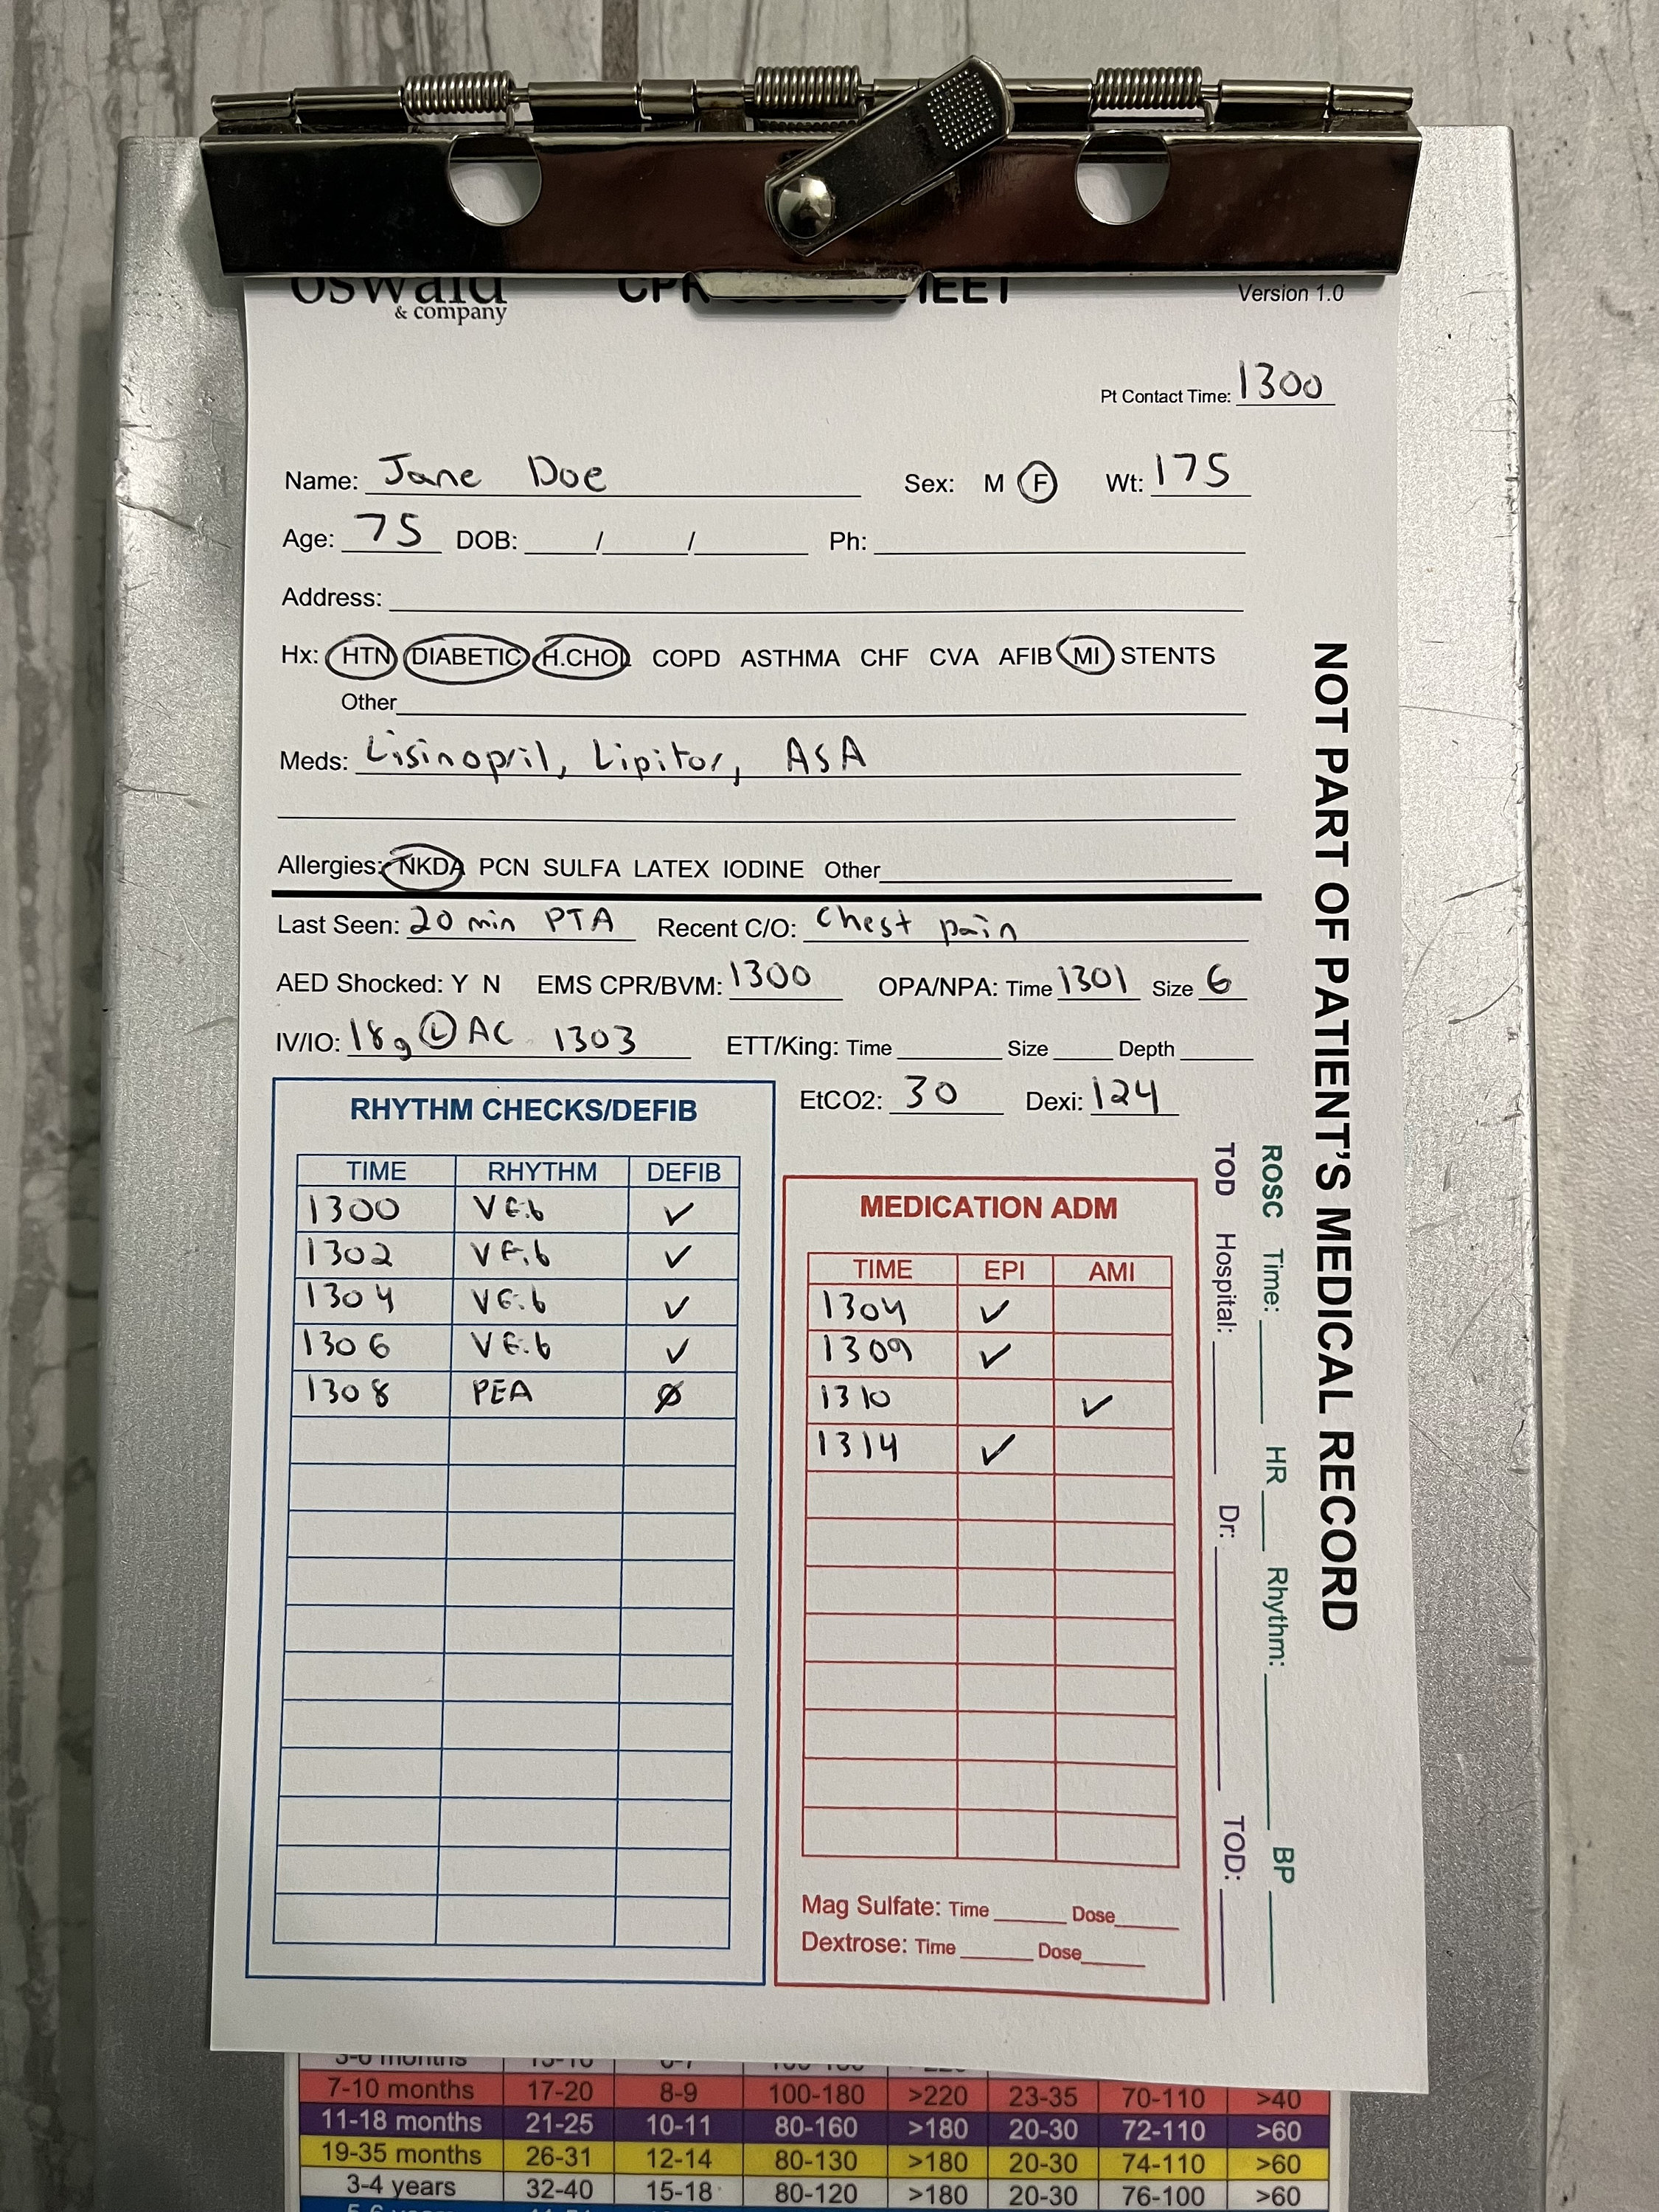 oswald
& company
CPR SHEET
Version 1.0
Pt Contact Time: 1300
Name: Jane Doe Sex: M F Wt: 175
Age: 75 DOB: / / Ph:
Address:
Hx: HTN DIABETIC H.CHOL COPD ASTHMA CHF CVA AFIB MI STENTS
Other
Meds: Lisinopril, Lipitor, ASA
Allergies: NKDA PCN SULFA LATEX IODINE Other
Last Seen: 20 min PTA Recent C/O: Chest pain
AED Shocked: Y N EMS CPR/BVM: 1300 OPA/NPA: Time 1301 Size 6
IV/IO: 18g L AC 1303 ETT/King: Time Size Depth
EtCO2: 30 Dexi: 124
RHYTHM CHECKS/DEFIB
TIME RHYTHM DEFIB
1300 VFib ✓
1302 VFib ✓
1304 VFib ✓
1306 VFib ✓
1308 PEA Ø
MEDICATION ADM
TIME EPI AMI
1304 ✓
1309 ✓
1310 ✓
1314 ✓
Mag Sulfate: Time Dose
Dextrose: Time Dose
TOD Hospital: Dr: TOD:
ROSC Time: HR Rhythm: BP
NOT PART OF PATIENT'S MEDICAL RECORD
3-6 months
7-10 months 17-20 8-9 100-180 >220 23-35 70-110 >40
11-18 months 21-25 10-11 80-160 >180 20-30 72-110 >60
19-35 months 26-31 12-14 80-130 >180 20-30 74-110 >60
3-4 years 32-40 15-18 80-120 >180 20-30 76-100 >60